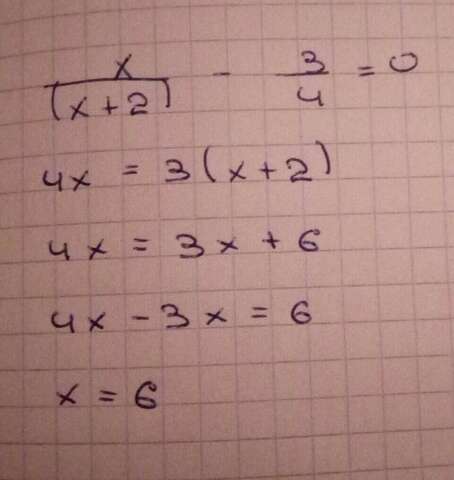 x/(x+2) - 3/4 = 0
4x = 3(x+2)
4x = 3x + 6
4x - 3x = 6
x = 6